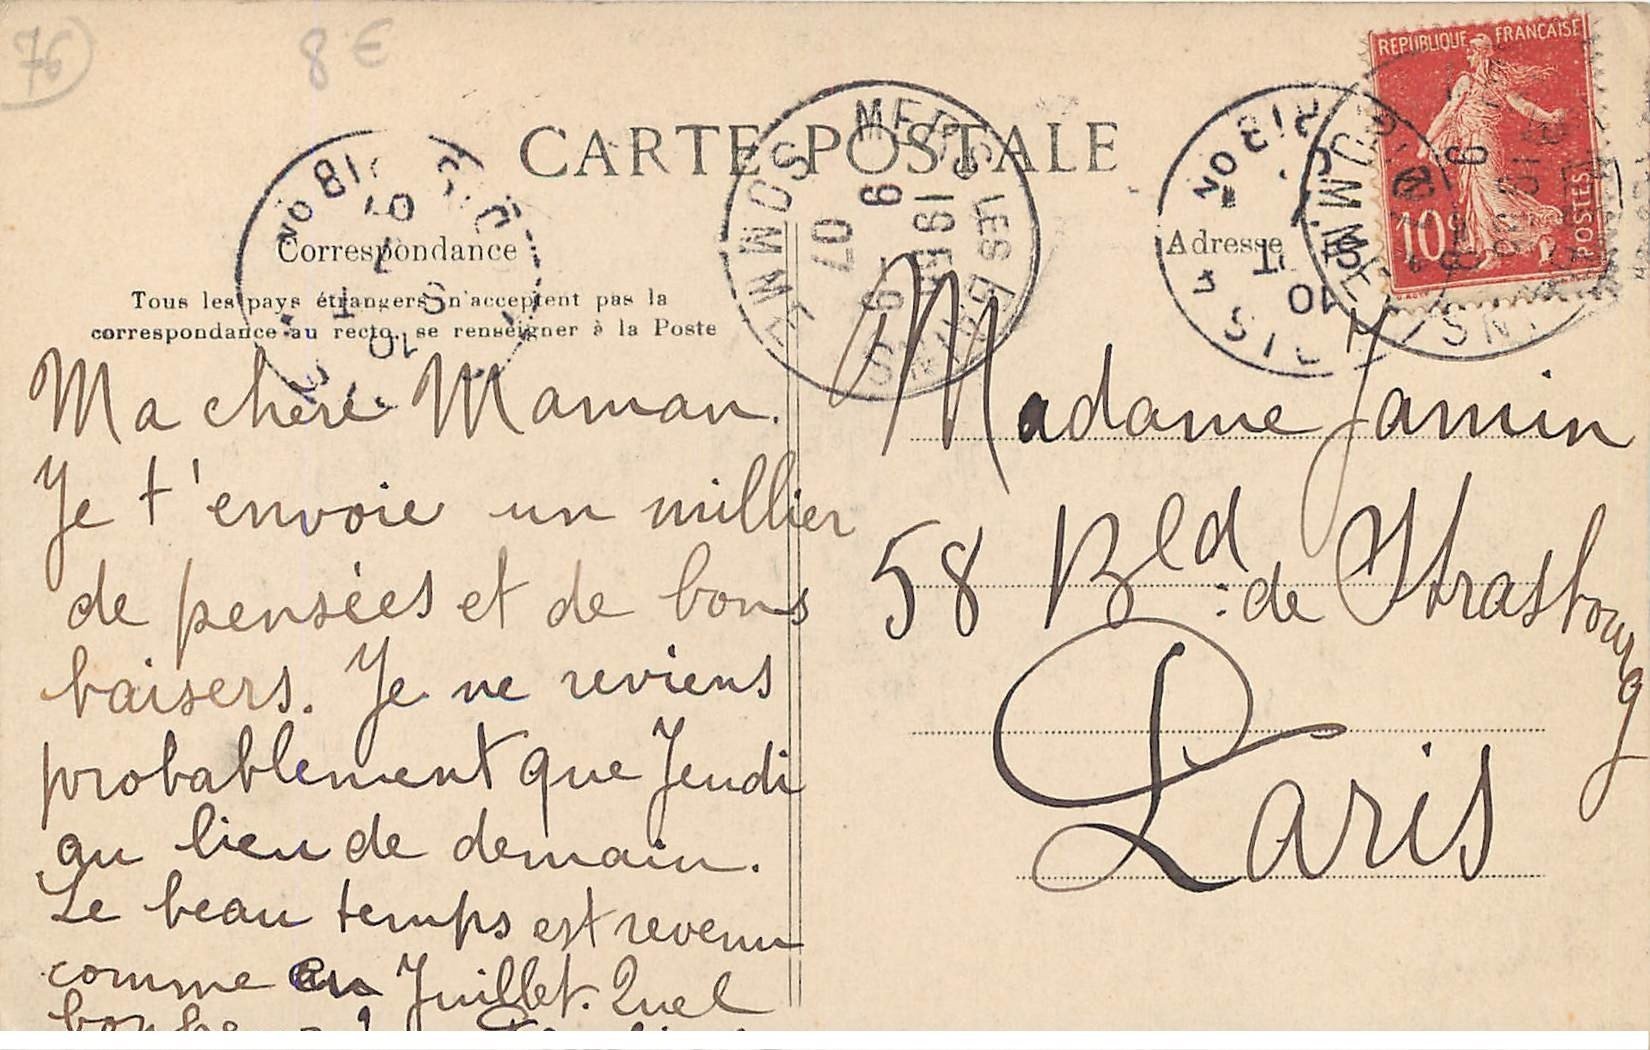 76
8 €
CARTE POSTALE
REPUBLIQUE FRANÇAISE
10c
POSTES
MERS LES BAINS
SOMME
19
6 - 9
07
Correspondance
Adresse
Tous les pays étrangers n'acceptent pas la
correspondance au recto, se renseigner à la Poste
Ma chère Maman.
Je t'envoie un millier
de pensées et de bons
baisers. Je ne reviens
probablement que Jeudi
au lieu de demain.
Le beau temps est revenu
comme en Juillet. Quel
Madame Jamin
58 Bld: de Strasbourg
Paris